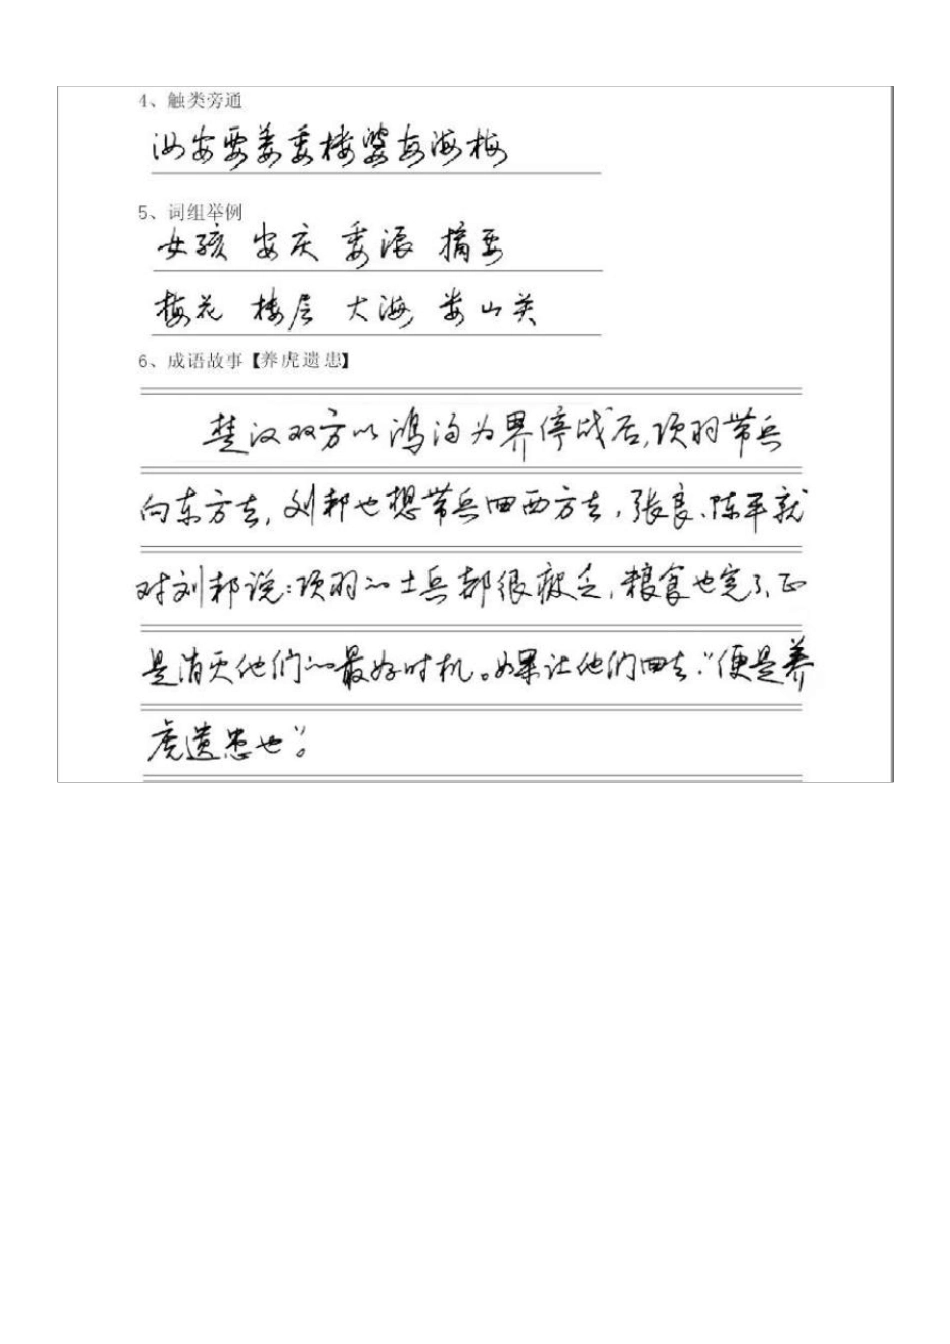 4、触类旁通
汝安要姜委楼婆每海梅
5、词组举例
女孩 安庆 委派 摘要
梅花 楼层 大海 娄山关
6、成语故事【养虎遗患】
楚汉双方以鸿沟为界停战后,项羽带兵
向东方去,刘邦也想带兵回西方去,张良、陈平就
对刘邦说:项羽的士兵都很疲乏,粮食也完了,正
是消灭他们的最好时机。如果让他们回去:“便是养
虎遗患也”。